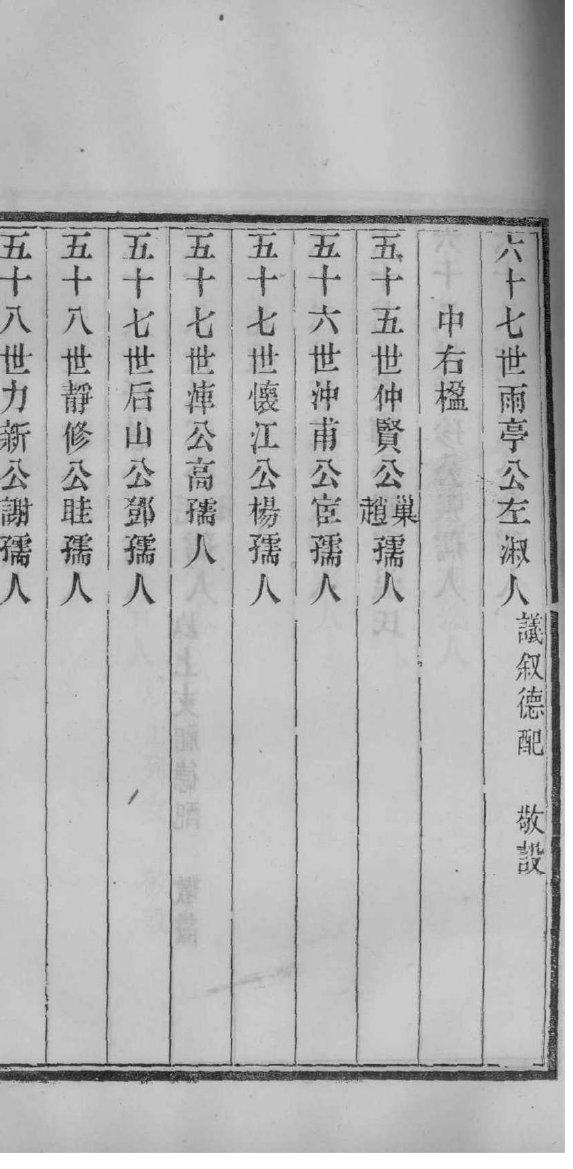 六十七世雨亭公左淑人 議叙德配 敬設
中右楹
五十五世仲賢公巢趙孺人
五十六世沖甫公宦孺人
五十七世懷江公楊孺人
五十七世渖公高孺人
五十七世后山公鄧孺人
五十八世靜修公眭孺人
五十八世力新公謝孺人